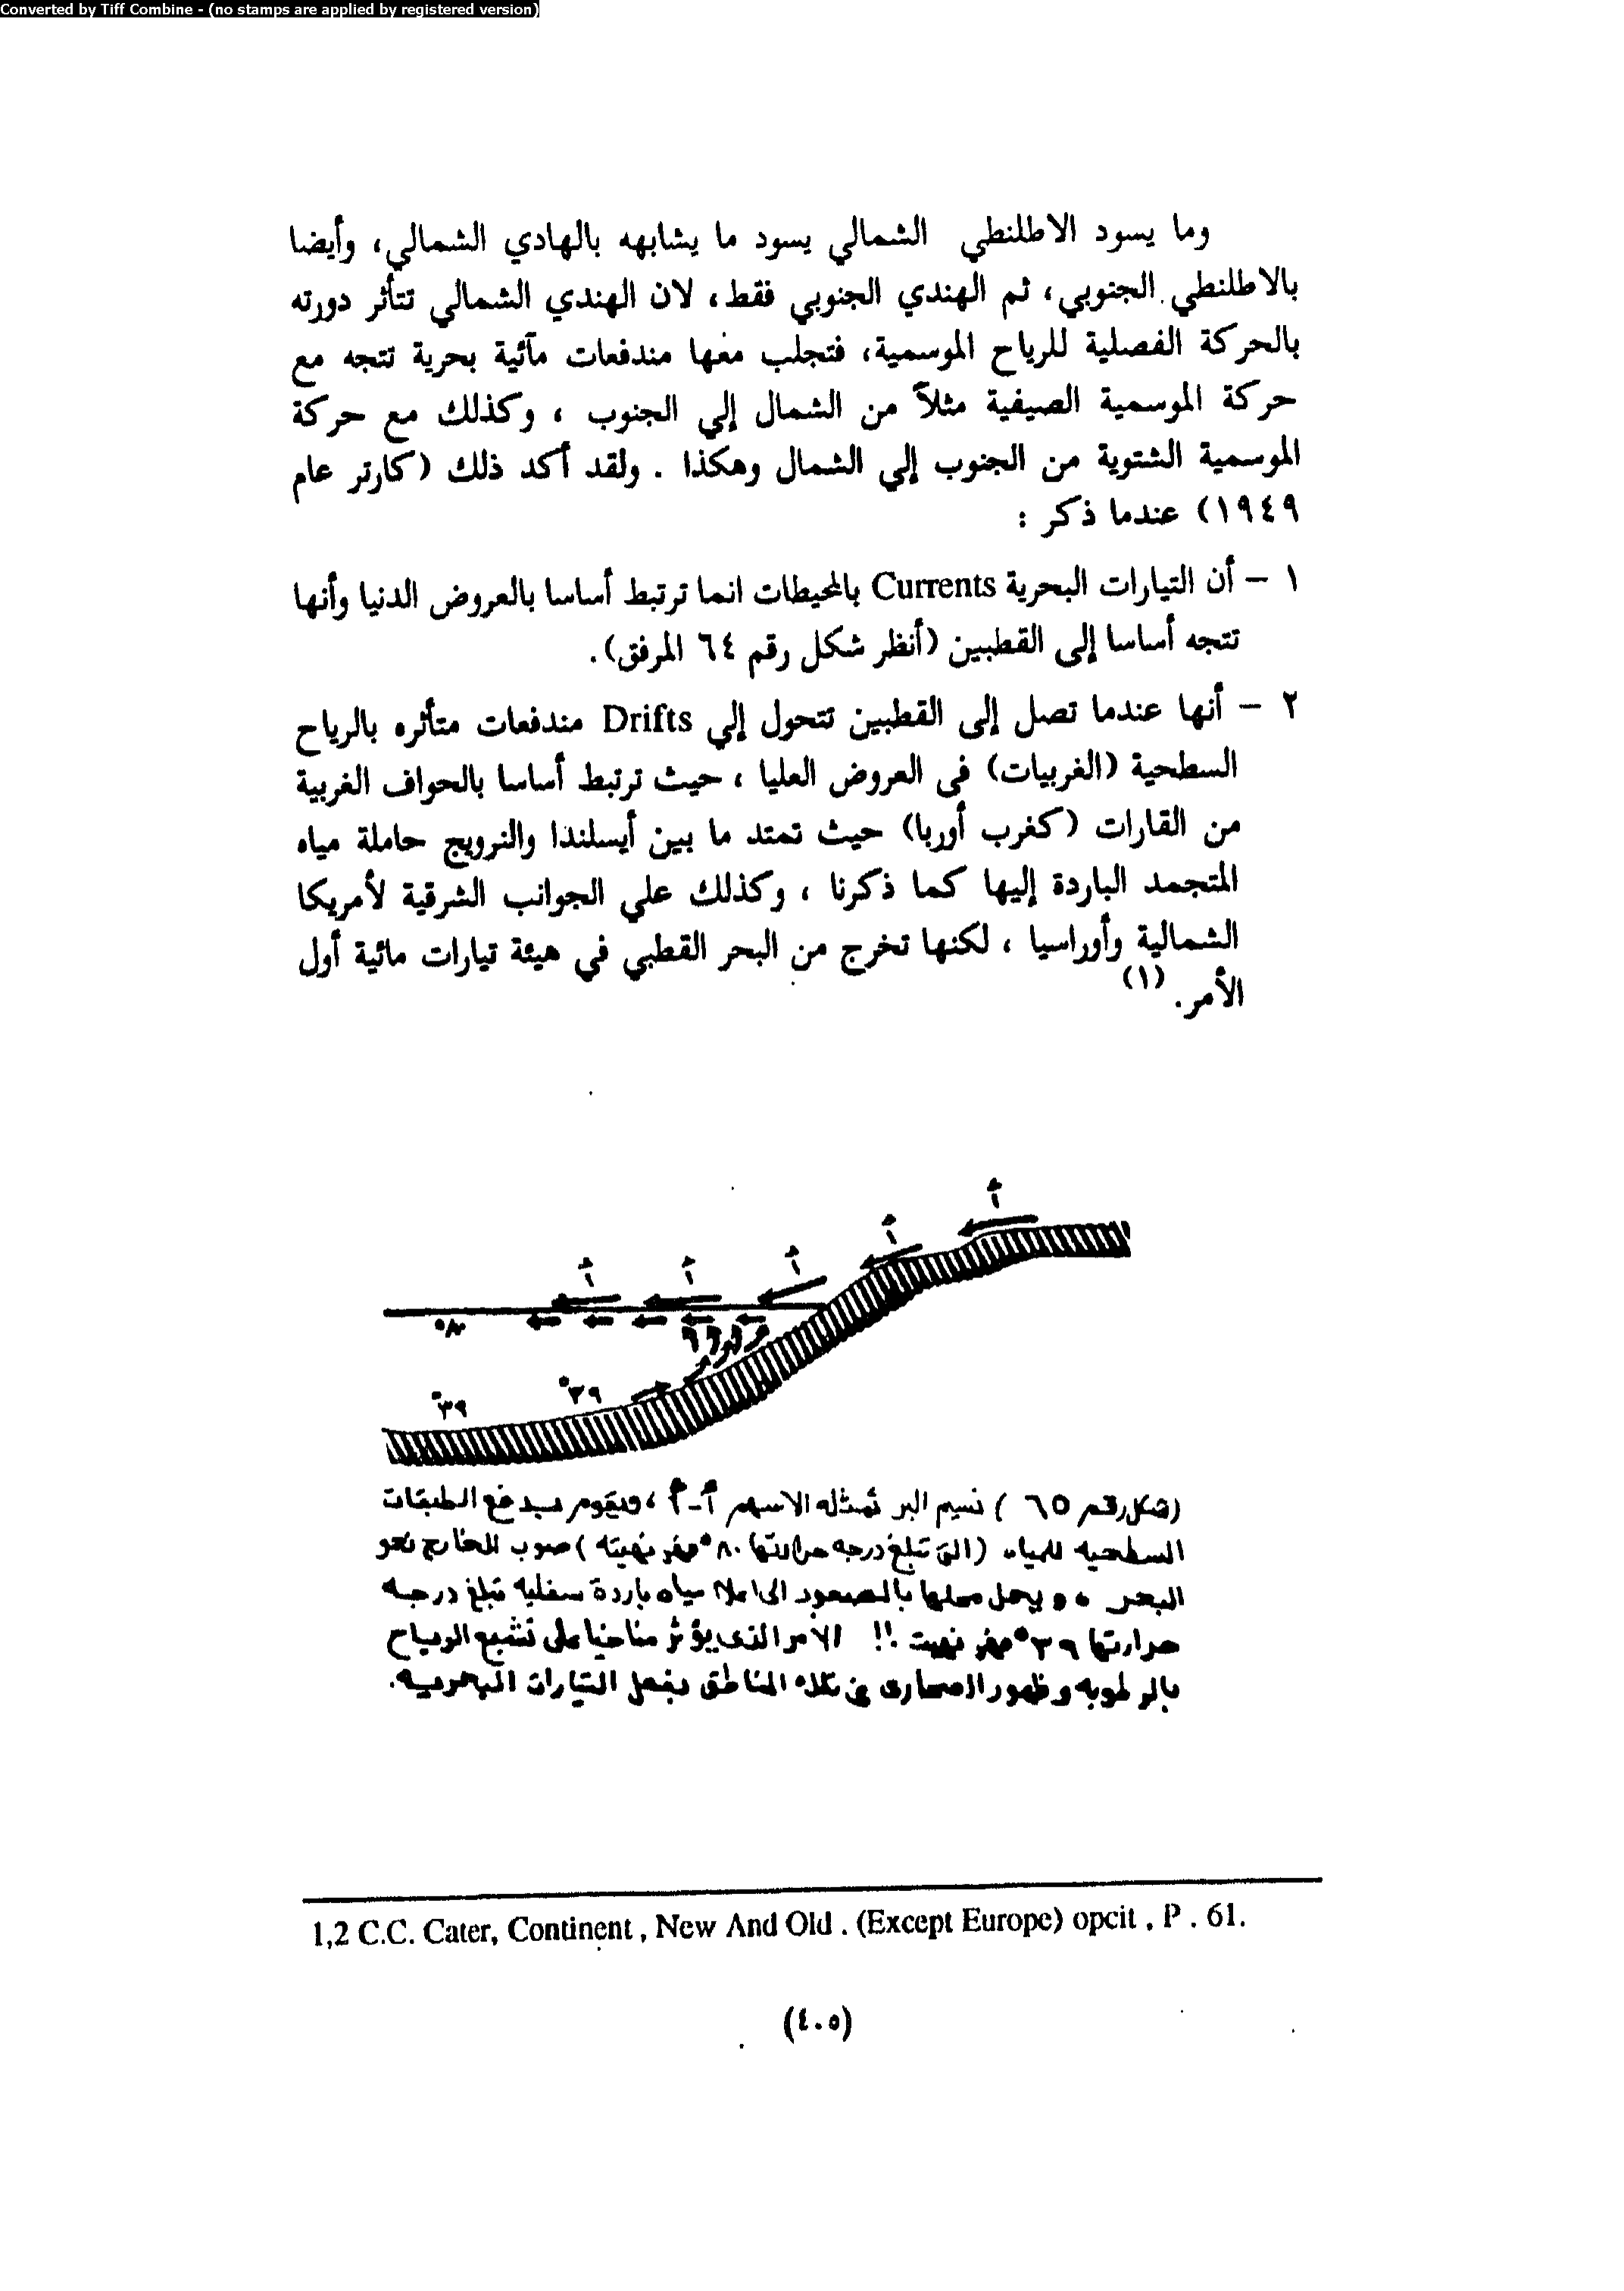 Converted by Tiff Combine - (no stamps are applied by registered version)
وما يسود الاطلنطي الشمالي يسود ما يشابهه بالهادي الشمالي، وأيضا
بالاطلنطي الجنوبي، ثم الهندي الجنوبي فقط، لان الهندي الشمالي تتأثر دورته
بالحركة الفصلية للرياح الموسمية، فتجلب معها مندفعات مآئية بحرية تتجه مع
حركة الموسمية الصيفية مثلاً من الشمال إلي الجنوب ، وكذلك مع حركة
الموسمية الشتوية من الجنوب إلي الشمال وهكذا . ولقد أكد ذلك (كارتر عام
١٩٤٩) عندما ذكر :
١ – أن التيارات البحرية Currents بالمحيطات انما ترتبط أساسا بالعروض الدنيا وأنها
تتجه أساسا إلى القطبين (أنظر شكل رقم ٦٤ المرفق).
٢ – أنها عندما تصل إلى القطبين تتحول إلي Drifts مندفعات متأثره بالرياح
السطحية (الغربيات) فى العروض العليا ، حيث ترتبط أساسا بالحواف الغربية
من القارات (كغرب أوربا) حيث تمتد ما بين أيسلندا والنرويج حاملة مياه
المتجمد الباردة إليها كما ذكرنا ، وكذلك علي الجوانب الشرقية لأمريكا
الشمالية وأوراسيا ، لكنها تخرج من البحر القطبي في هيئة تيارات مائية أول
الأمر. (١)
أ أ أ أ أ
٨٠°
٣٩° ٣٩°
(شكل رقم ٦٥ ) نسيم البر تمثله الاسهم أ-أ ، ويقوم بدفع الطبقات
السطحيه للمياه (التى تبلغ درجه حرارتها ٨٠° فهرنهيته ) صوب الخارج نحو
البحر ، ويحل محلها بالصعود الى اعلا مياه باردة سفليه تبلغ درجه
حرارتها ٣٩° فهرنهيت !! الأمر الذى يؤثر مناخيا على تشبع الرياح
بالرطوبه وظهور الصحارى فى تلك المناطق بفعل التيارات البحريه.
1,2 C.C. Cater, Continent , New And Old . (Except Europe) opcit , P . 61.
(٤٠٥)